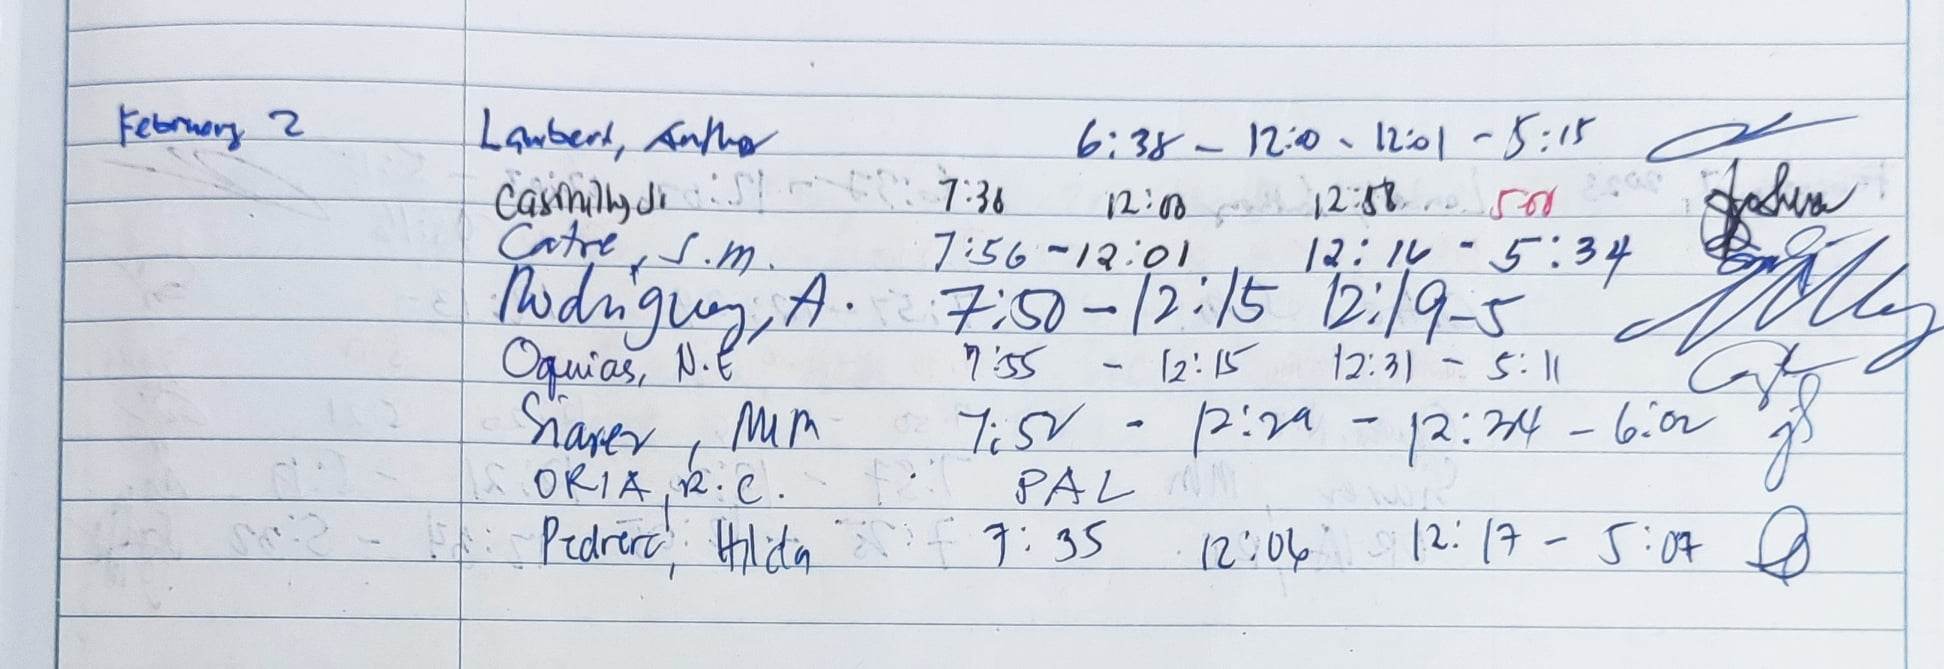 February 2 Lambert, Anthon 6:38 - 12:00 - 12:01 - 5:15
7:36 12:00 12:58 5:00 Joshua
Catre, S.M. 7:56 - 12:01 12:16 - 5:34
Rodriguez, A. 7:50 - 12:15 12:19 - 5
Oquias, N.E 7:55 - 12:15 12:31 - 5:11
MM 7:52 - 12:29 - 12:34 - 6:02
ORIA, R.C. PAL
Pedrero, Hilda 7:35 12:06 12:17 - 5:07